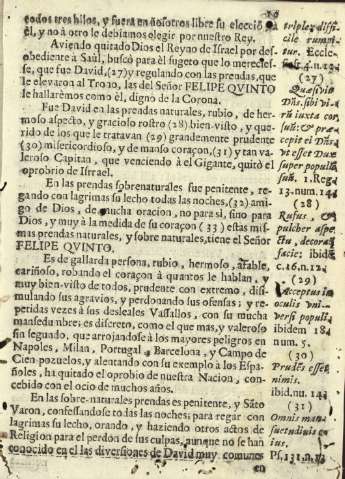 todos tres hilos, y fuera en nosotros libre su elecció
él, y no à otro le debiamos elegir por nuestro Rey.
Aviendo quitado Dios el Reyno de Israel por des-
obediente à Saùl, buscò para èl sugeto que lo merecies-
se, que fue David, (27) y regulando con las prendas, que
le elevaron al Trono, las del Señor FELIPE QVINTO
le hallarèmos como èl, digno de la Corona.
Fue David en las prendas naturales, rubio, de her-
moso aspecto, y gracioso rostro (28) bien-visto, y que-
rido de los que le tratavan (29) grandemente prudente
(30) misericordioso, y de manso coraçon, (31) y tan va-
leroso Capitan, que venciendo à el Gigante, quitò el
oprobrio de Israel.
En las prendas sobrenaturales fue penitente, re-
gando con lagrimas su lecho todas las noches, (32) ami-
go de Dios, de mucha oracion, no para si, sino para
Dios, y muy à la medida de su coraçon (33) estas mis-
mas prendas naturales, y sobre naturales, tiene el Señor
FELIPE QVINTO.
Es de gallarda persona, rubio, hermoso, afable,
cariñoso, robando el coraçon à quantos le hablan, y
muy bien-visto de todos, prudente con extremo, dissi-
mulando sus agravios, y perdonando sus ofensas; y re-
petidas vezes à sus desleales Vassallos, con su mucha
mansedumbre; es discreto, como el que mas, y valeroso
sin segundo, que arrojandose à los mayores peligros en
Napoles, Milan, Portugal, Barcelona, y Campo de
Cien-pozuelos, y alentando con su exemplo à los Espa-
ñoles, ha quitado el oprobrio de nuestra Nacion, con-
cebido con el ocio de muchos años.
En las sobre-naturales prendas es penitente, y Sãto
Varon, confessandose todas las noches; para regar con
lagrimas su lecho, orando, y haziendo otros actos de
Religion para el perdon de sus culpas, aunque no se han
conocido en el las diversiones de David muy comunes
en
triplex diffi-
cile rumpi-
tur. Eccle-
s. 4. n. 12
(27)
Quæsivit
Dñs. sibi vi-
rũ iuxta cor
suũ: & præ-
cepit ei Dñs
vt esset Dux
super populũ
suũ. 1. Reg.
13. num. 14
(28)
Rufus, &
pulcher aspe-
ctu, decora
facie: ibidẽ
c. 16. n. 12
(29)
Acceptus in
oculis vni-
versi populi
ibidem 18
num. 5.
(30)
Prudẽs esset
nimis.
ibid. nu. 14
(31)
Omnis man-
suetudinis e-
ius.
Ps. 131. n. 1